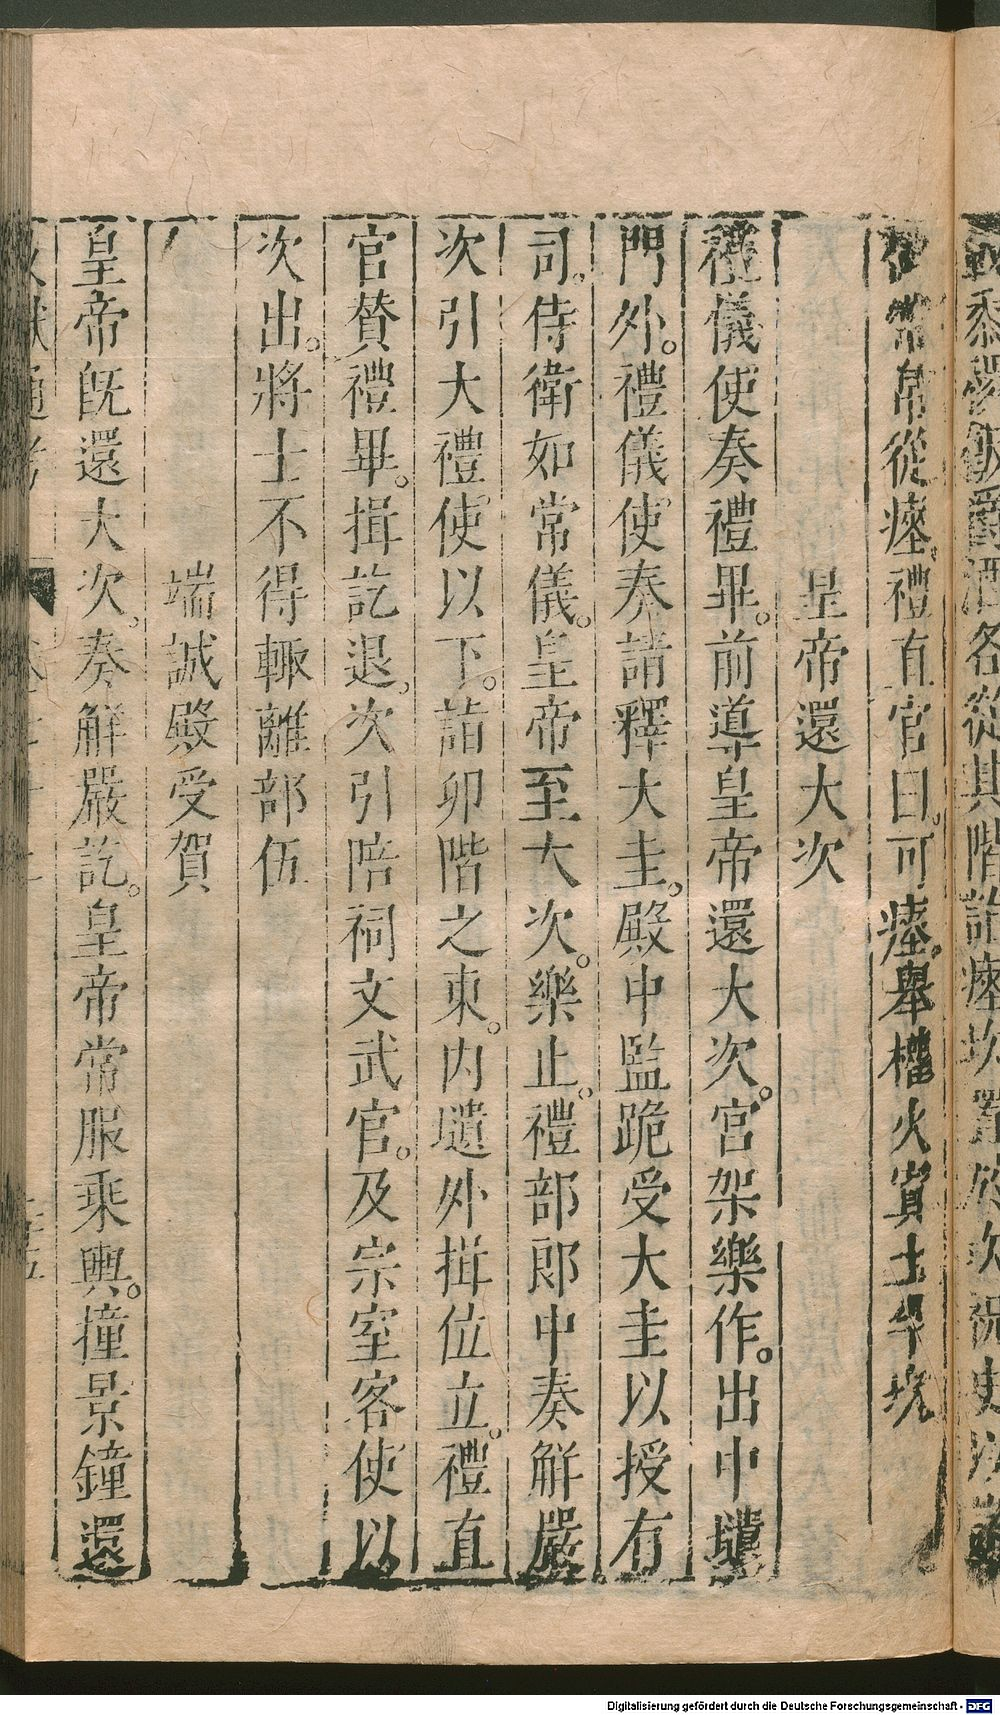 黍稷飯爵酒各從其階詣瘞坎置於坎次祝史
帛從瘞。禮直官曰。可瘞。舉權火實土半坎
皇帝還大次
禮儀使奏禮畢。前導皇帝還大次。宮架樂作。出中壝
門外。禮儀使奏請釋大圭。殿中監跪受大圭以授有
司。侍衛如常儀。皇帝至大次。樂止。禮部郎中奏解嚴
次引大禮使以下。詣卯階之東。內壝外揖位立。禮直
官贊禮畢。揖訖退。次引陪祠文武官。及宗室客使以
次出。將士不得輙離部伍
端誠殿受賀
皇帝旣還大次。奏解嚴訖。皇帝常服乘輿。撞景鐘還
文獻通考
Digitalisierung gefördert durch die Deutsche Forschungsgemeinschaft - DFG